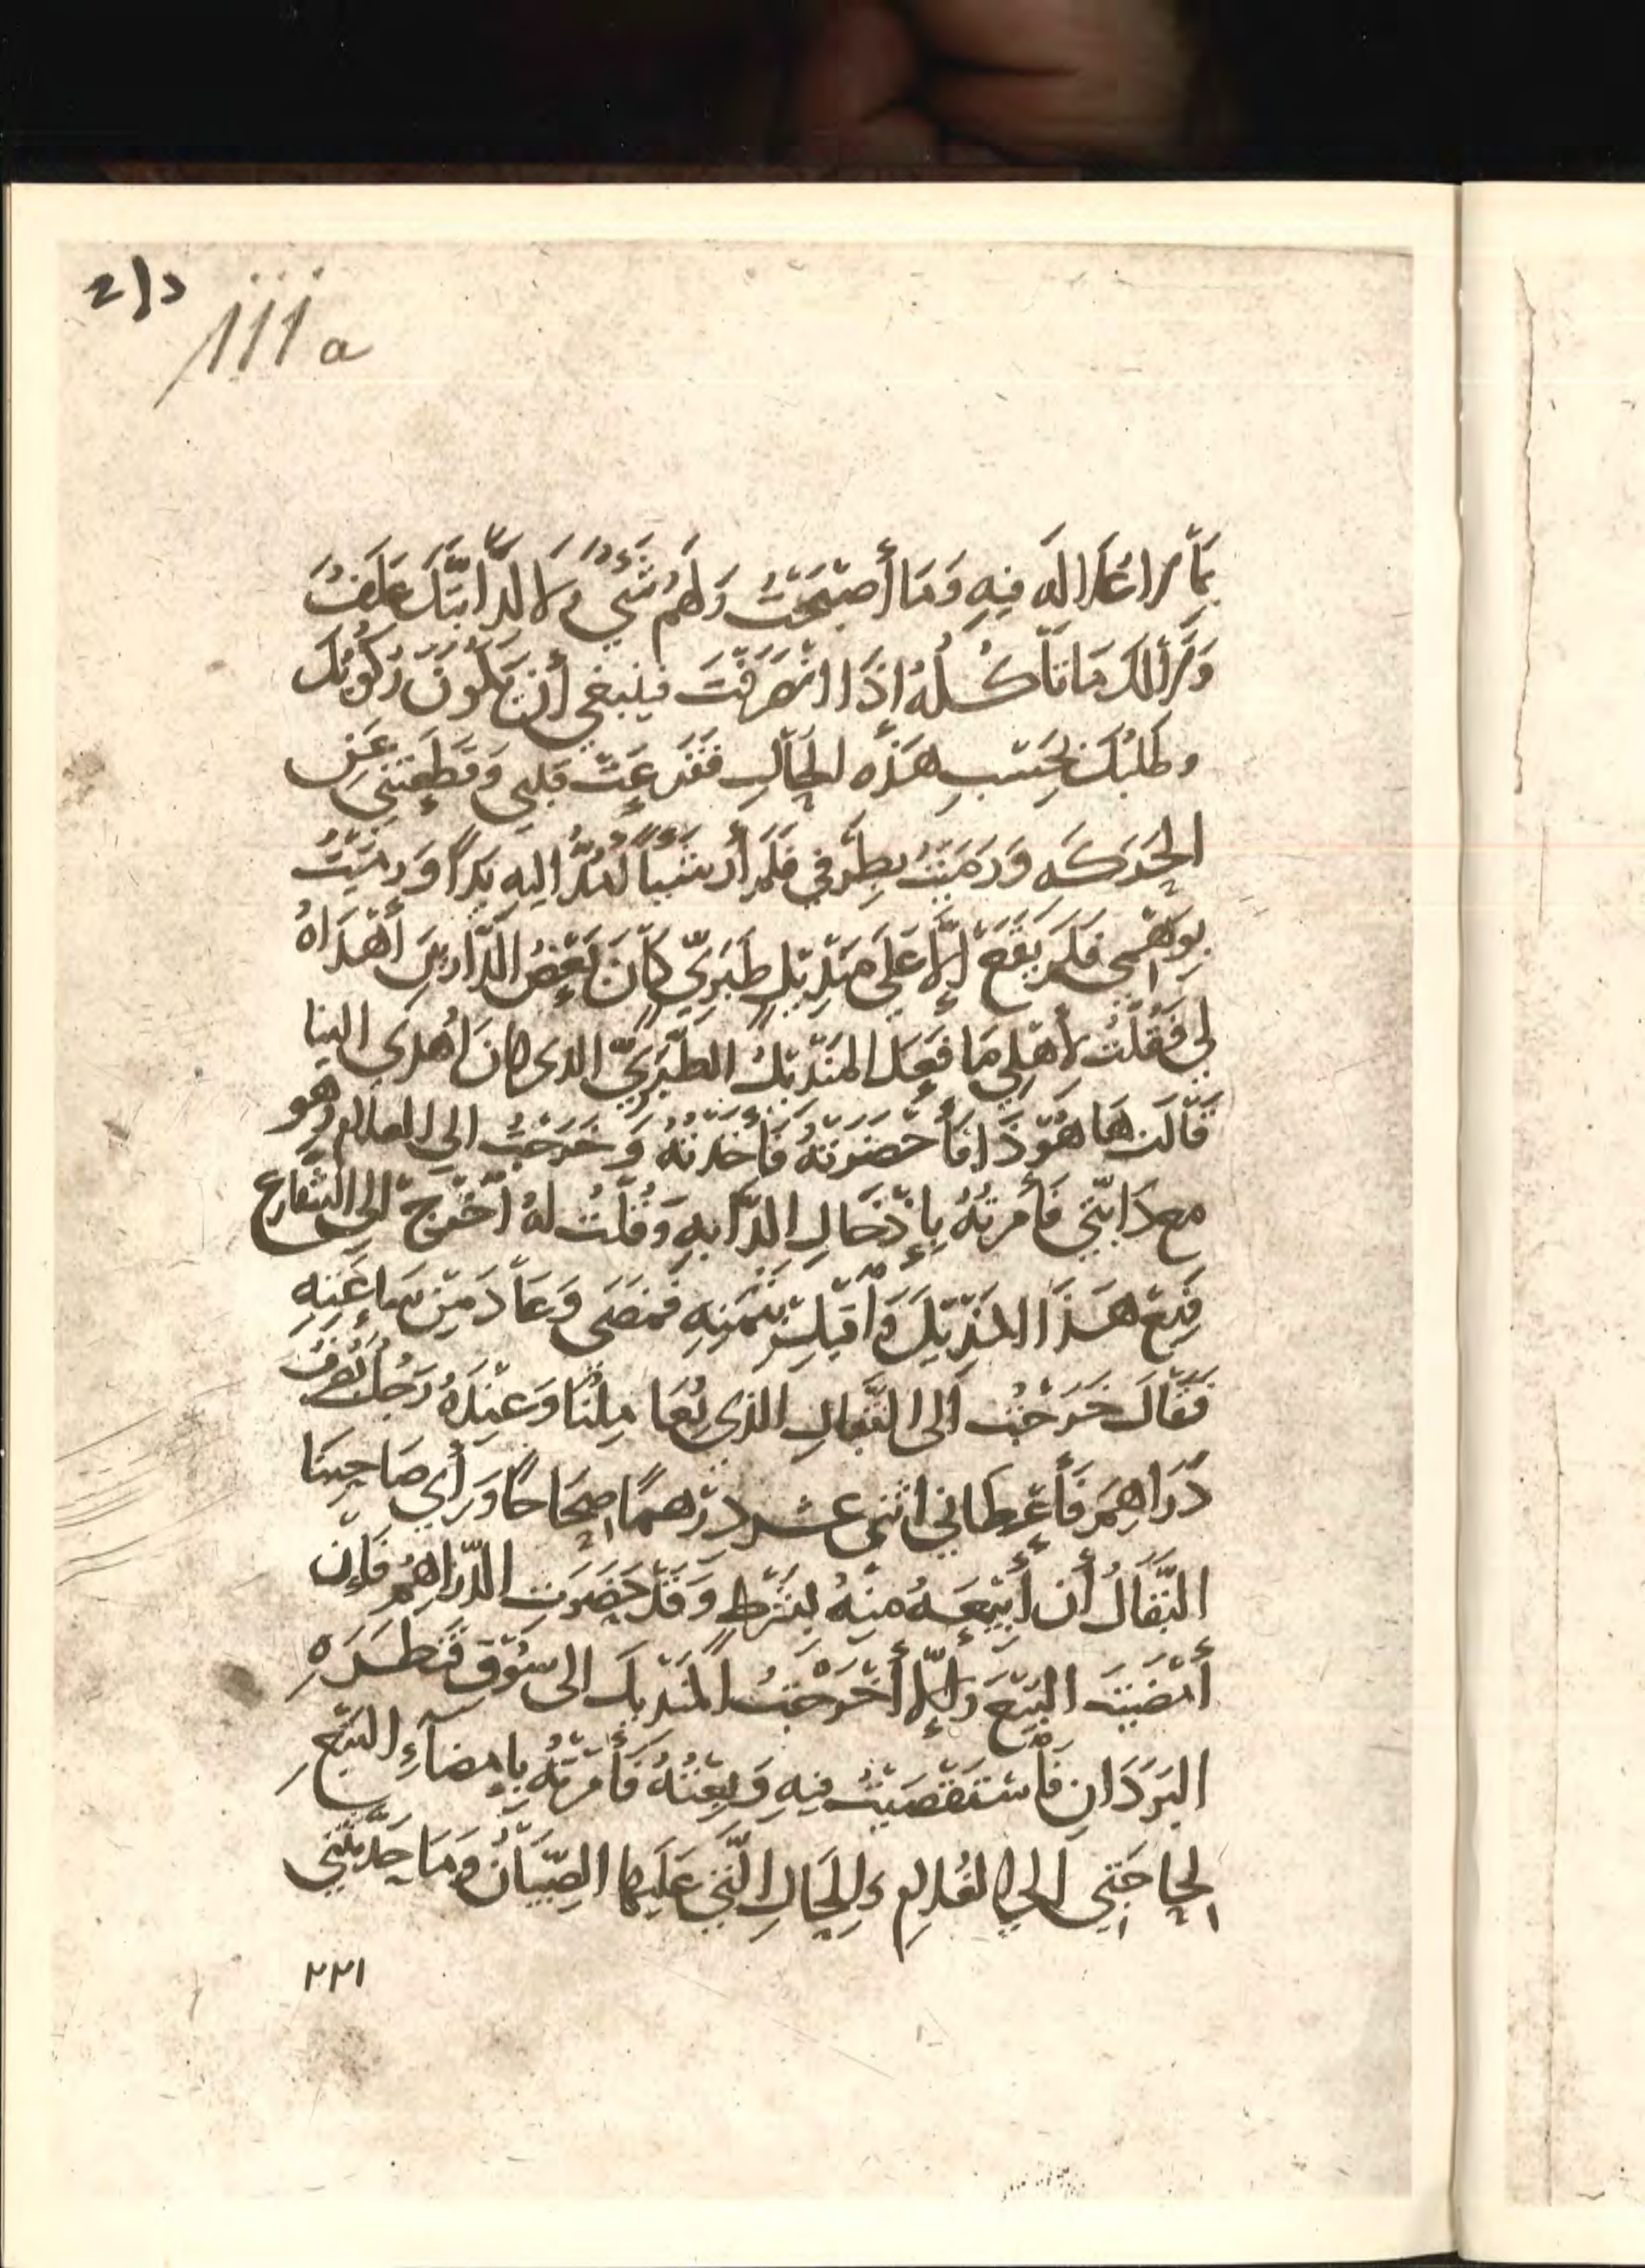 ٢١٥
111a
بما لا عدالة فيه وَمَا أصْبَحْتُ وَلَهُمْ شَيْءٌ وَلَا لدَابَّتِكَ عَلَفٌ
وَلَا لَكَ مَا تَأكُلُهُ إذَا انْصَرَفْتَ فينبغي أن يَكُونَ رُكُوبُكَ
وطَلَبُكَ بِحَسَبِ هَذِه الحَالِ فَقَرَعَتْ قَلبي وَقَطَعَتْنِي عَن
الحَركَه وَرَمَيْتُ بِطَرْفي فَلَمْ أر شَيْئاً أمُدُّ إليه يَداً وَرمَيْتُ
بِوَهْمِي فَلَمْ يَقَعْ إلَّا عَلَى مَنْدِيلٍ طَبَرِيٍّ كَانَ بَعْضُ البَزَّازِينَ أهْدَاهُ
لِي فَقُلْتُ لأهْلِي مَا فَعَلَ المَنْدِيلُ الطَّبَرِيُّ الذى كانَ أُهْدِىَ إلينا
فَقَالَت هَا هُوَ ذَا فَأحْضَرَتْهُ فَأخَذْتُهُ وَخَرَجْتُ إلى الغلام وهو
مع دَابَّتِي فَأمَرتُهُ بِإدْخَالِ الدَّابهِ وَقُلْتُ لهُ أخْرُجْ إلى الشَّارِع
فَبِعْ هَذَا المَنْدِيلَ وَأقْبِلْ بِثَمَنِهِ فَمَضَى وَعَادَ مِنْ سَاعَتِهِ
فَقَالَ خَرَجْتُ إلى البَقَّالِ الذي يُعَامِلُنَا وَعِنْدَهُ رَجُلٌ يَصْرِفُ
دَرَاهِمَ فَأعْطَاني اثني عشر دِرْهَمًا صِحَاحًا وَرَأي صَاحِبُنَا
البَقَّالُ أن أبِيعَهُ مِنْهُ بشَرْطٍ وَقَدْ حَضَرَتِ الدَّرَاهِمُ فَإن
أمْضَيْتَ البَيْعَ وَإلَّا أخْرَجْتُ المَنْدِيلَ إلى سُوْقِ قَنطَرَهِ
البَرَدَانِ فَأسْتَقْصَيْتُ فِيهِ وَبِعْتُهُ فَأمَرْتُهُ بِإمضَآءِ البَيْعِ
لِحَاجَتِي إلى الغُلامِ وَلِلْحَالِ الَّتِي عَلَيهَا الصِّبْيَانُ وَمَا حَدَّثَتْنِي
٢٢١